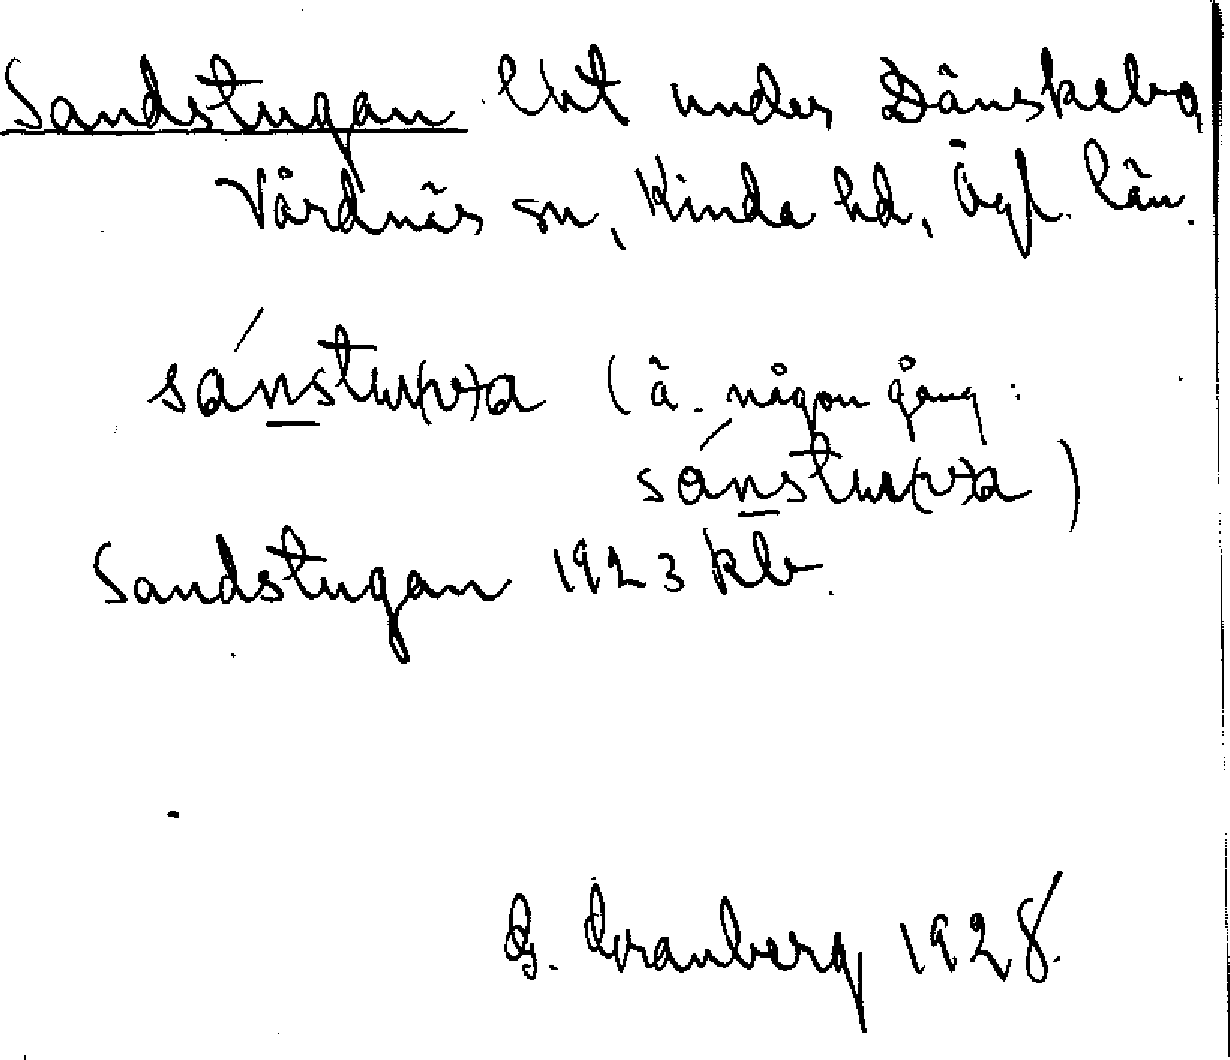 Sandstugan lht under Dänskebo
Vårdnäs sn, Kinda hd, Ögl. län.
sánstu(v)a (ä. någon gång:
sánstu(v)a)
Sandstugan 1923 klb.
G. Granberg 1928.